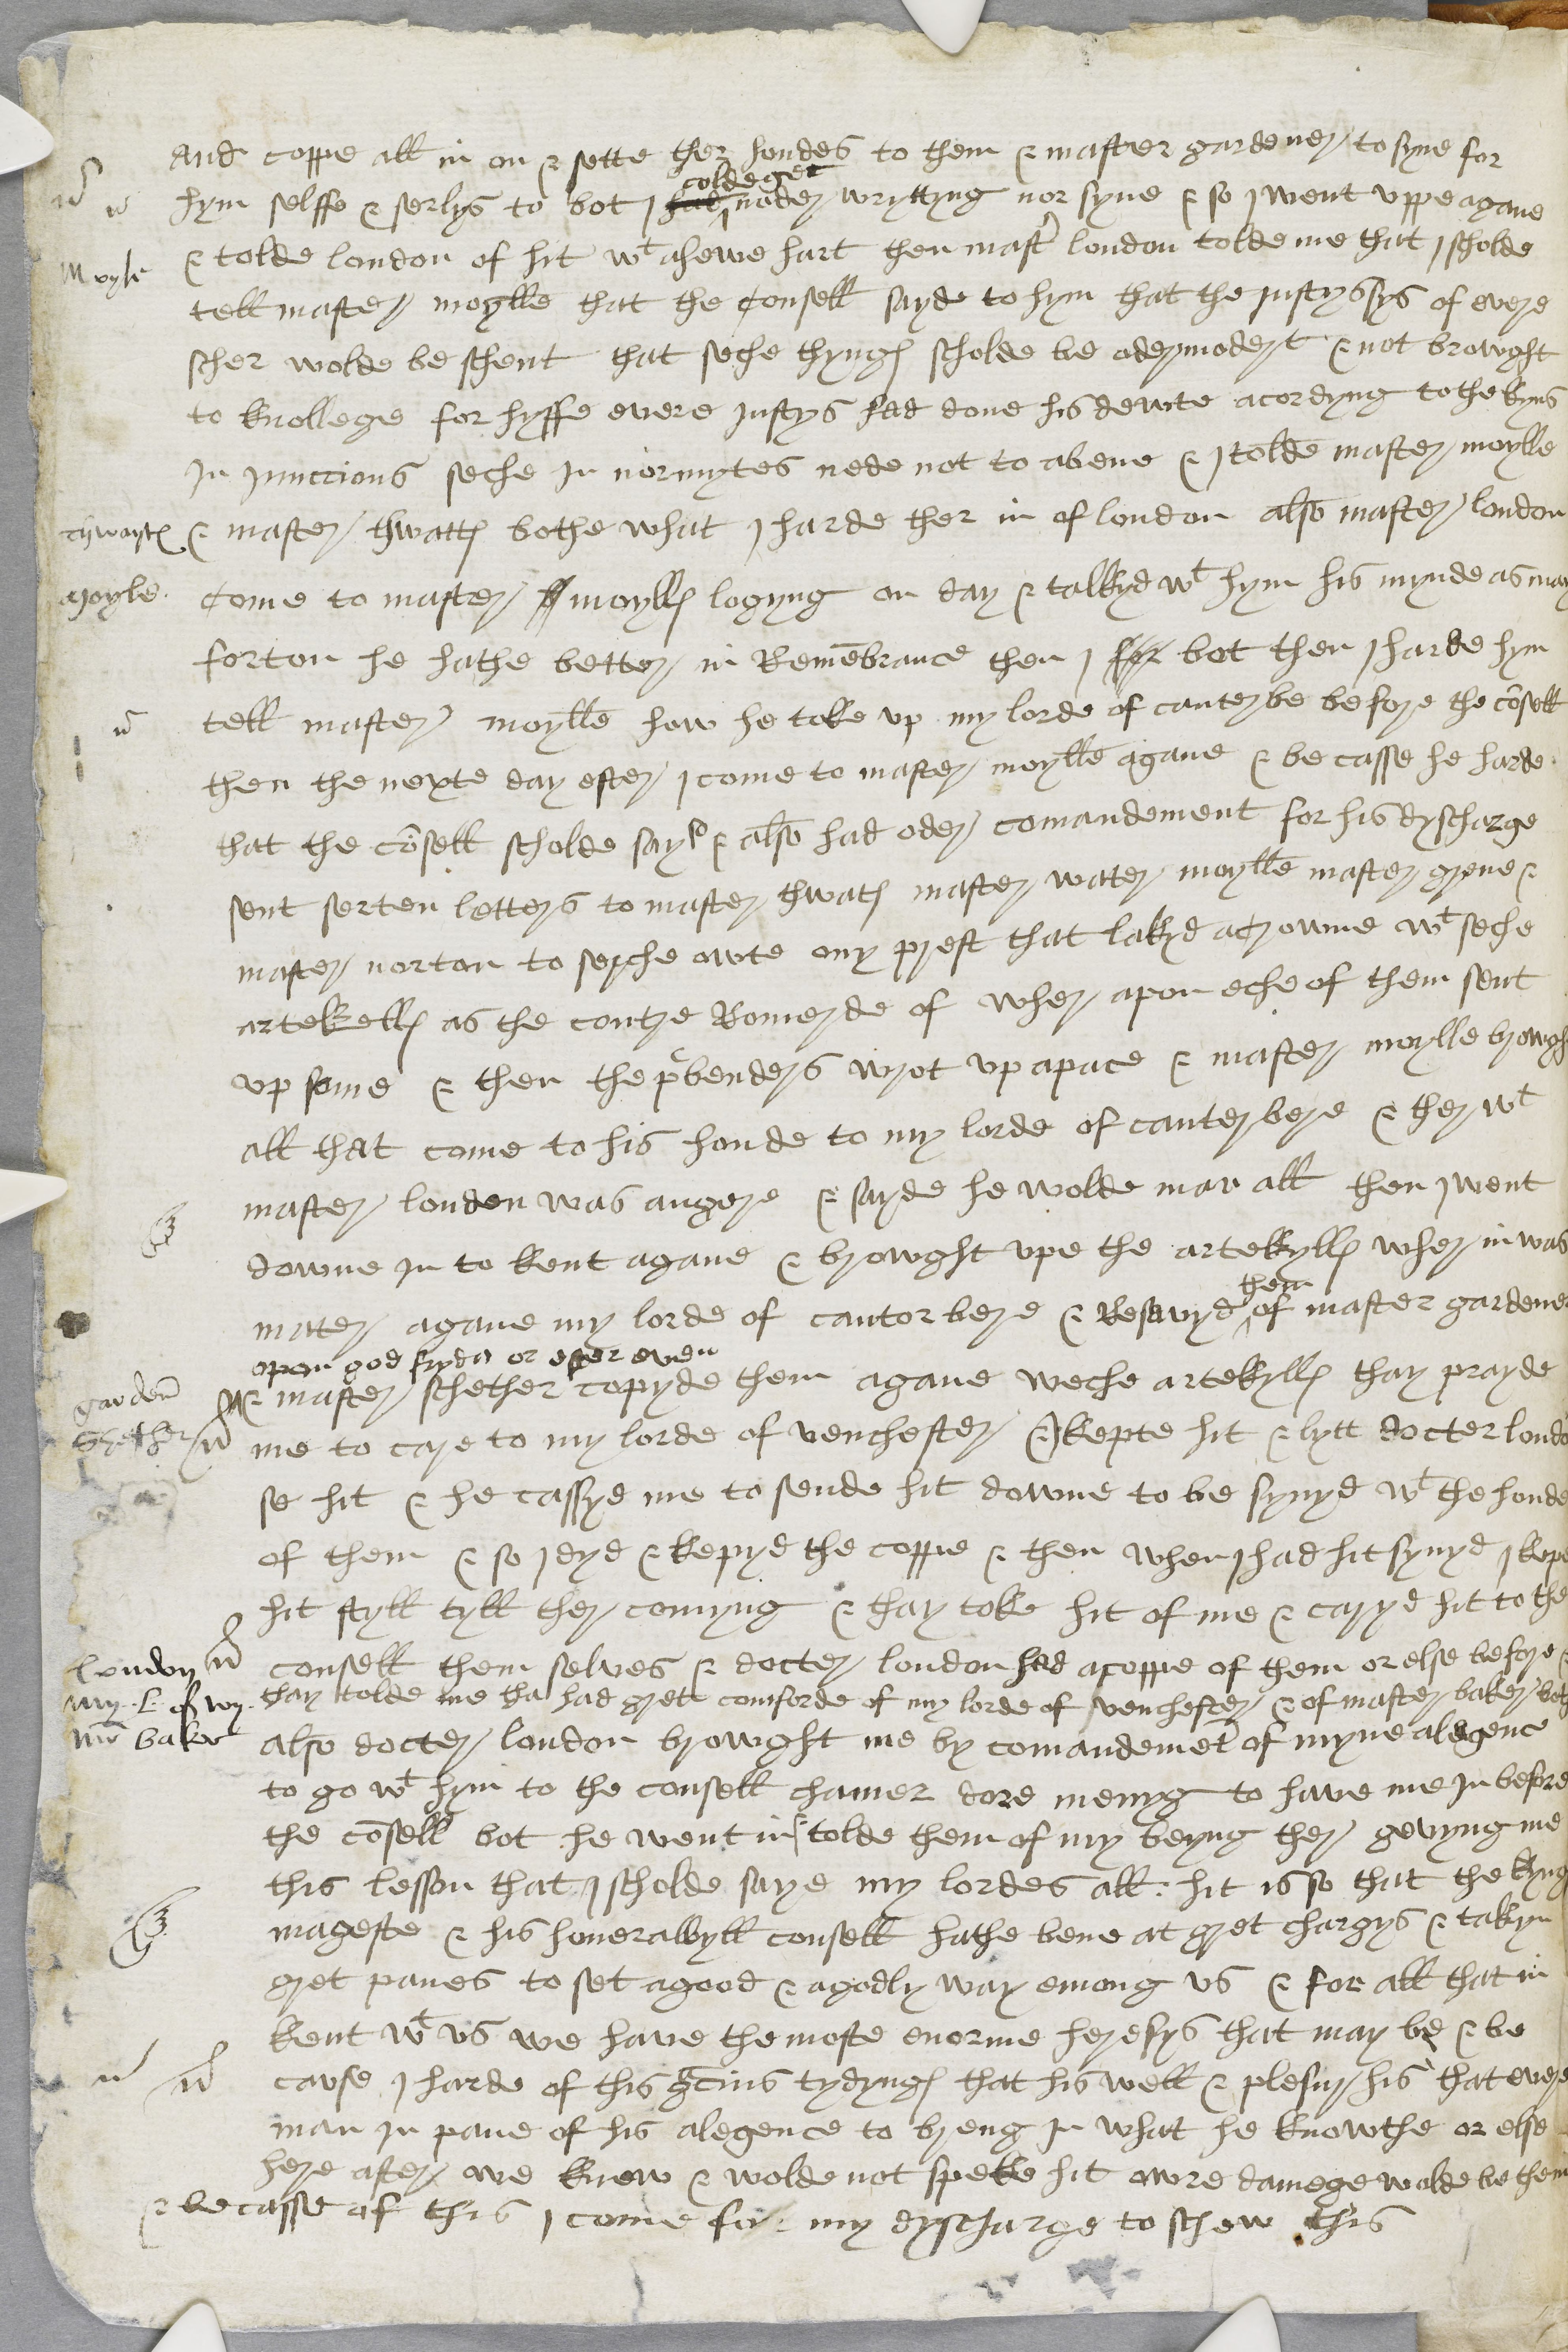 And coppe all in on & sette ther hondes to them & master gardener to syne for
hym selffe & serlys to bot I had coldeget noder wryttyng nor syne & so I went uppe agane
Moyle & tolde london of hit wt ahewe hart then mastr london tolde me that I scholde
tell master moylle that the Consell sayde to hym that the justyssys of evere
scher wolde be schent that seche thynges scholde be odermodert & not browght
to knollege for hyffe evere justys had done his dewte acordyng to the kyns
In Junccions seche In normytes nede not to abene & I tolde master moylle
thwaytes & master thwattes bothe what I harde ther in of london also master london
Moyle Come to master moylles logyng on day & talkyd wt hym his mynde as may
forton he hathe better in Remēbrance then I bot then I harde hym
tell master moylle how he toke up my lorde of canterbe before the cōsell
then the nexte day efter I come to master moylle agane & be casse he harde
that the cōsell scholde say so & also had oder comandement for his dyscharge
sent serten letters to master thwates master water moylle master grene &
master norton to serche owte ony prest that lakyd acrowne wt seche
artekelles as the contre Romerde of wher apon eche of them sent
up some & then the pbenders wrot up apace & master moylle browght
all that come to his honde to my lorde of canterbere & ther wt
master london was angere & sayde he wolde mar all then I went
downe In to kent agane & browght upe the artekylles wher in was
mater agane my lorde of cantorbere & Resavyd them of master gardener
opon god fryda or ester even
gardenr & master schether copyde them agane weche artekylles thay prayde
Shether me to care to my lorde of venchester & I kepte hit & lytt docter londō
se hit & he cassyd me to sende hit downe to be synyd wt the honde
of them & so I dyd & kepyd the coppe & then when I had hit synyd I kepe
hit styll tyll ther comyng & thay toke hit of me & caryd hit to the
London consell them selves & docter london had acoppe of them or else before
my L of wy thay tolde me tha had gret comforde of my lorde of venchester & of master baker
Mr baker also docter london browght me by comandemet of myne alegence
to go wt hym to the consell chamer dore menyg to have me In before
the cōsell bot he went in & tolde them of my beyng ther gevyng me
this lesson that I scholde saye my lordes all : hit is so that the kyng
mageste & his honerabbyll consell hathe bene at gret chargys & takyn
gret panes to set agood & agodly way emong us & for all that in
kent wt us we have the moste enorme heresys that may be & be
cause I harde of this gcius tydynges that his well & plesur his that evere
man In pane of his alegence to breng In what he knowthe or else
here after we knew & wolde not speke hit owre damege wolde be them
& be casse of this I come for my dyscharge to schew this